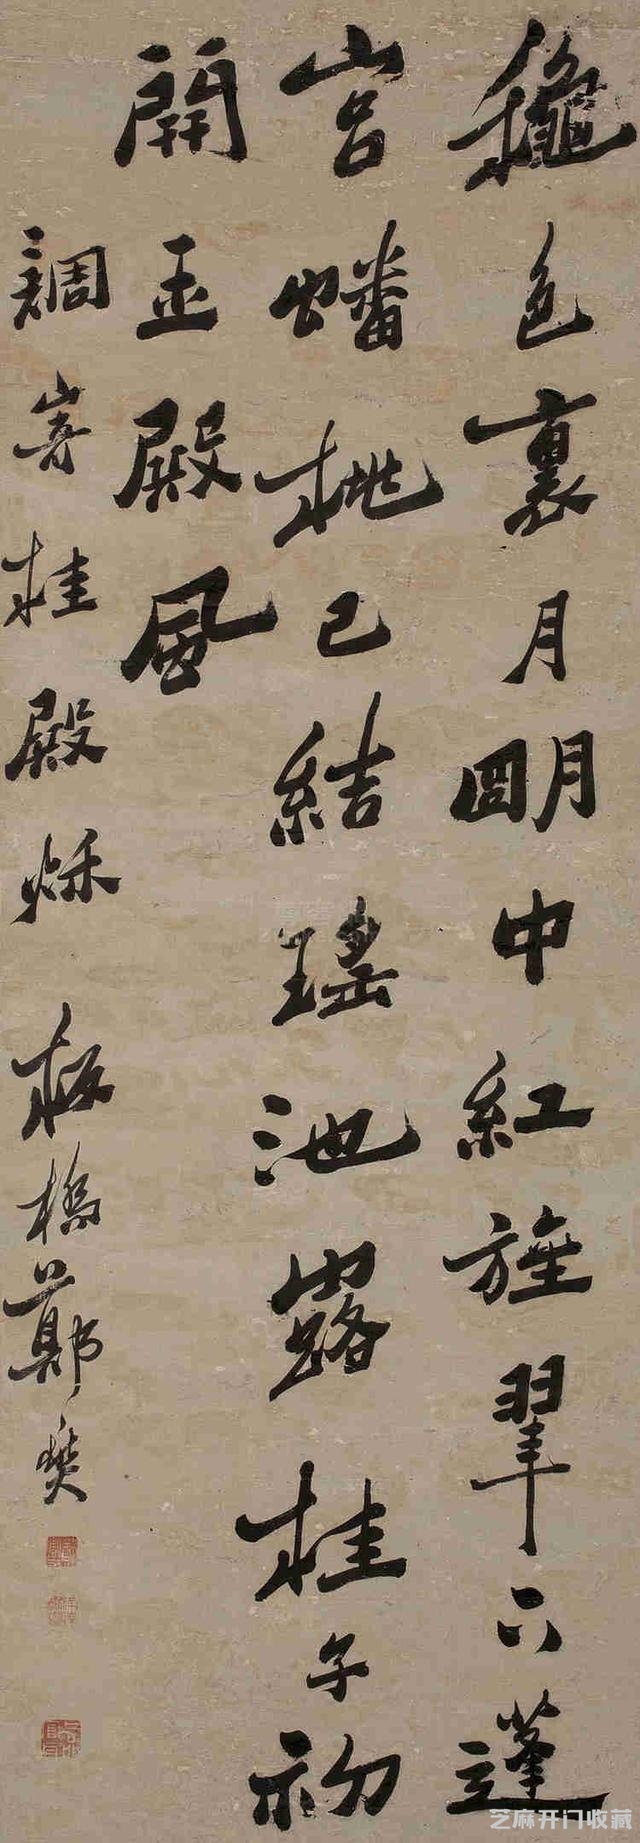 龝色裏月明中紅旌翠节下蓬
宮蟠桃已結瑤池露桂子初
開玉殿風
調寄桂殿秌 板橋鄭燮
芝麻开门收藏